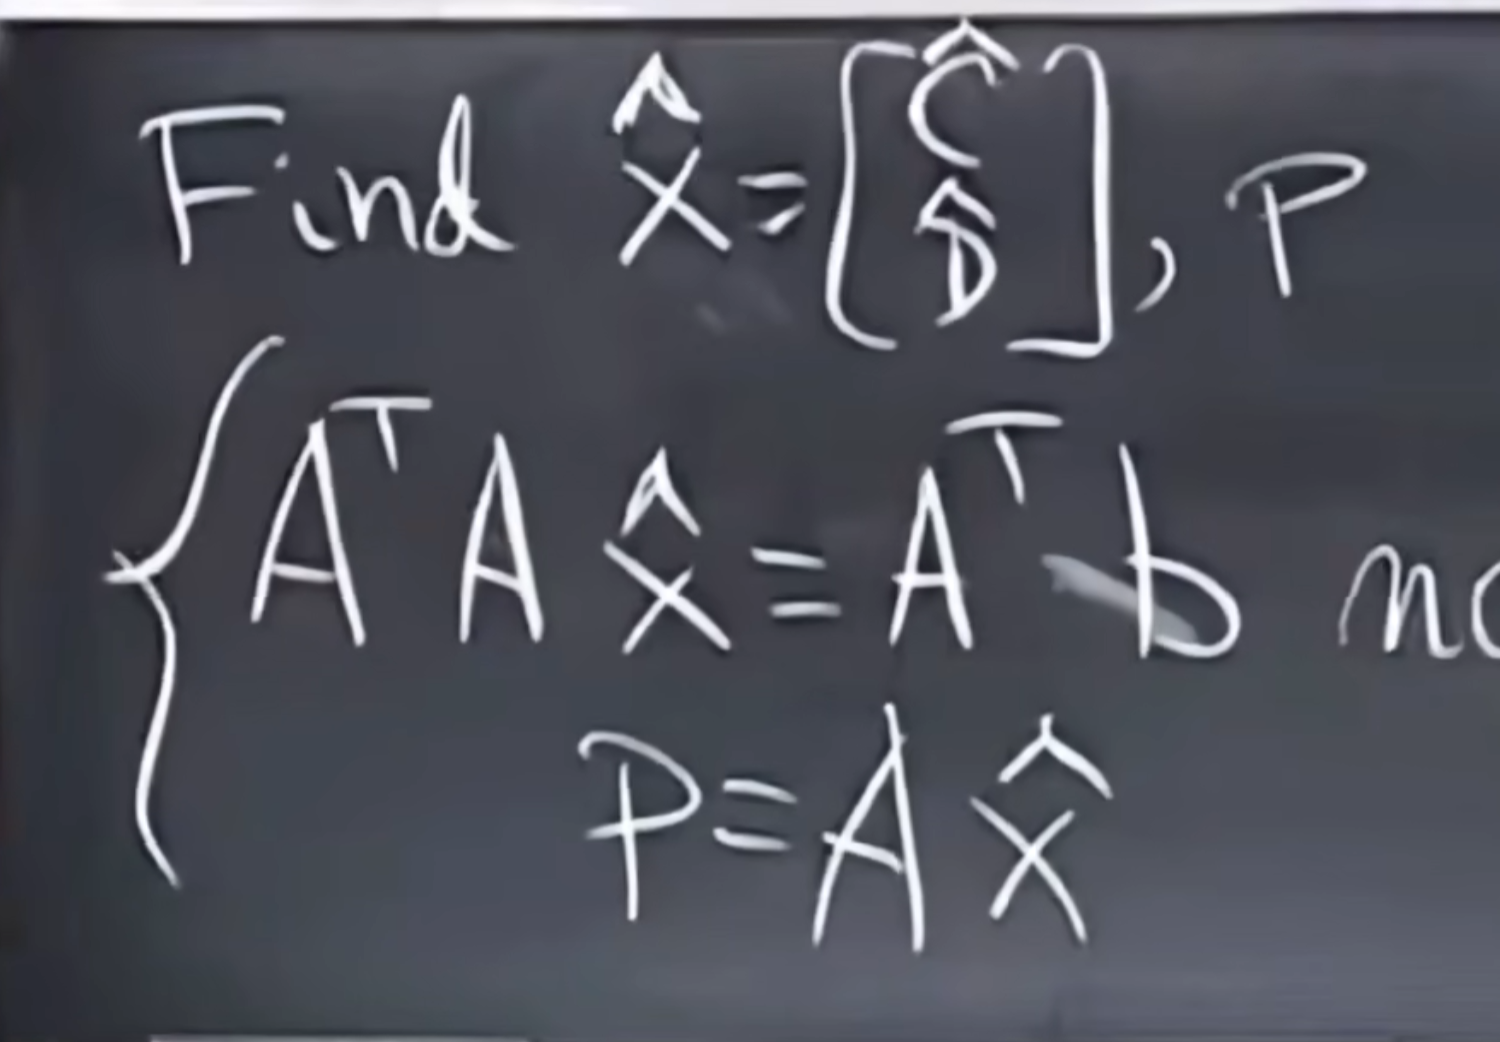 Find x̂ = [Ĉ D̂], P
AᵀA x̂ = Aᵀ b
P = A x̂